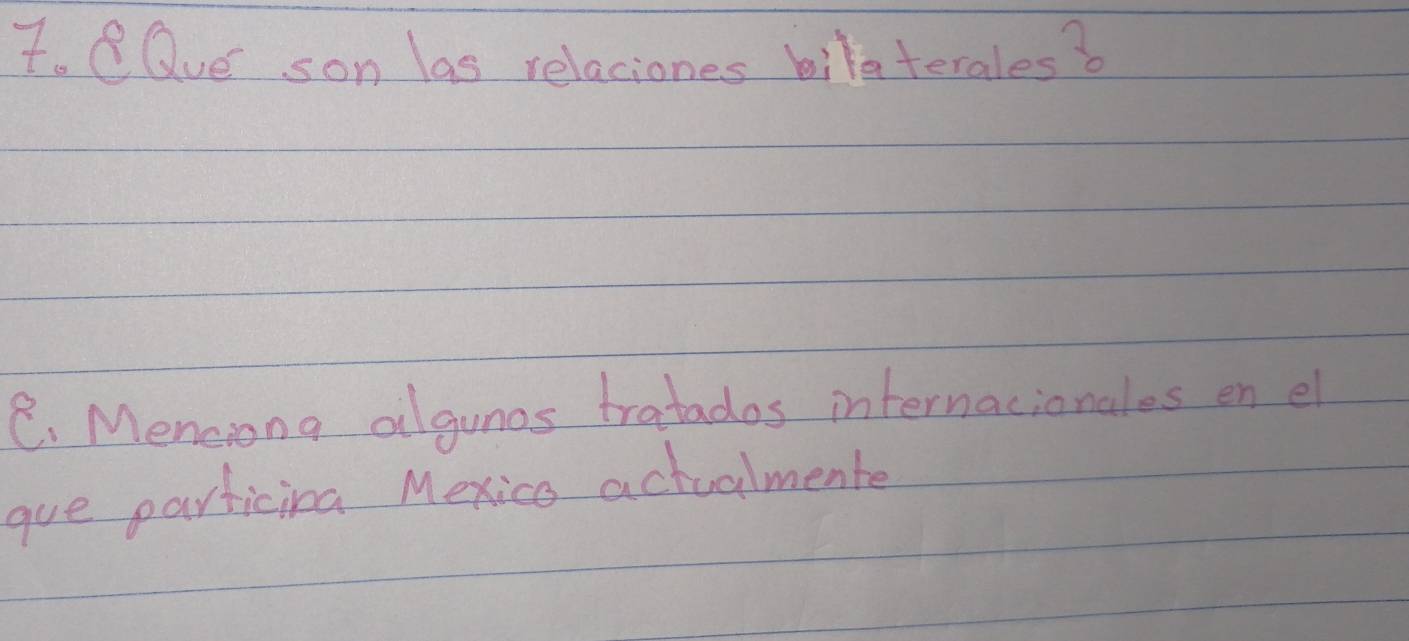 7. ¿Qué son las relaciones bilaterales?
8. Menciona algunos tratados internacionales en el
que participa Mexico actualmente